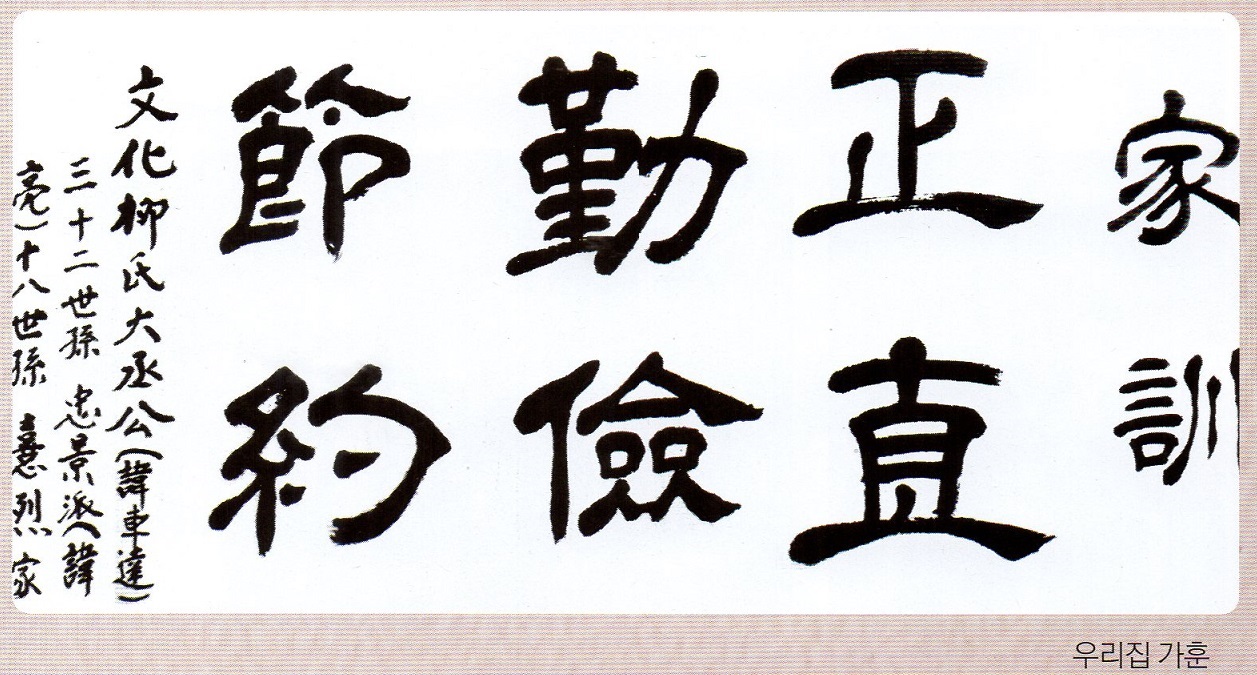 家訓
正直
勤儉
節約
文化柳氏大丞公(諱車達)
三十二世孫 忠景派(諱
亮)十八世孫 憙烈 家
우리집 가훈